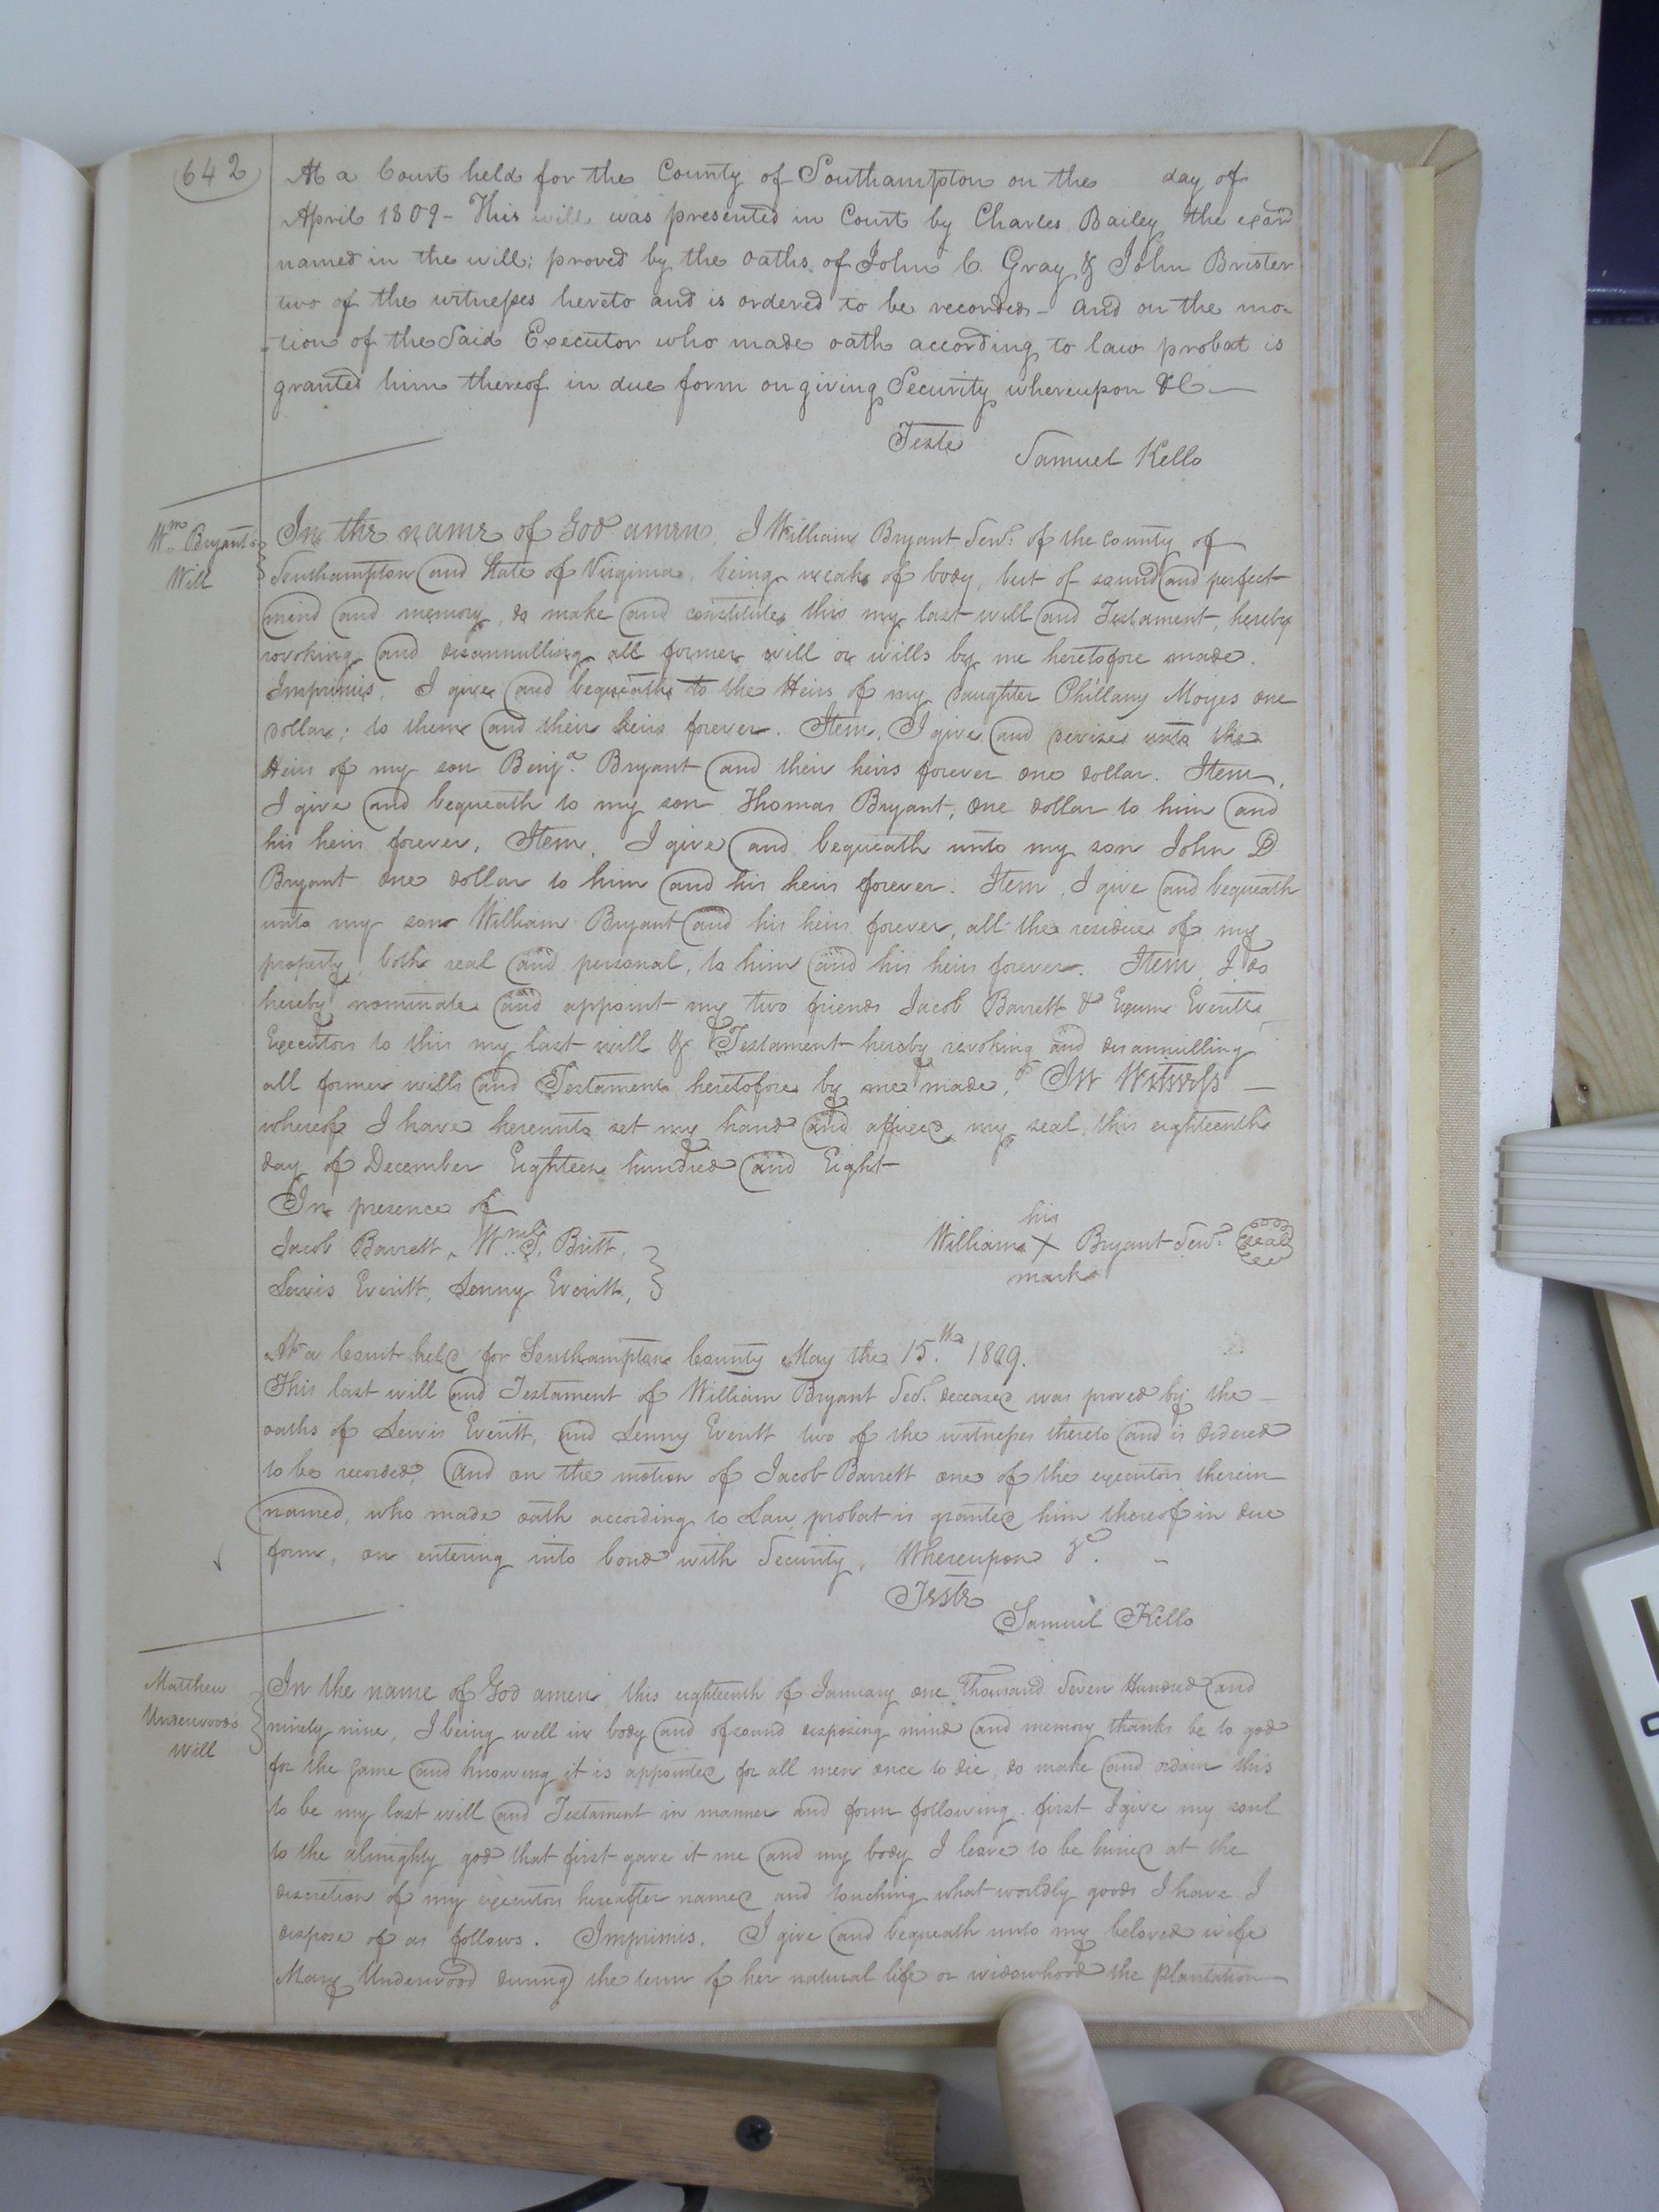 642
At a Court held for the County of Southampton on the day of
April 1809 - This will was presented in Court by Charles Bailey the exor
named in the will; proved by the oaths of John C. Gray & John Brister
two of the witnesses hereto and is ordered to be recorded - And on the mo-
-tion of the Said Executor who made oath according to law probat is
granted him thereof in due form on giving Security whereupon &C —
Teste
Samuel Kello
Wm. Bryant's
Will
In the name of God amen, I William Bryant Senr. of the county of
Southampton and State of Virginia, being weak of body, but of sound and perfect
mind and memory, do make and constitute this my last will and Testament, hereby
revoking and disannulling all former will or wills by me heretofore made.
Imprimis, I give and bequeath to the Heirs of my daughter Phillany Moyes one
dollar; to them and their heirs forever. Item, I give and devise unto the
Heirs of my son Benja. Bryant and their heirs forever one dollar. Item,
I give and bequeath to my son Thomas Bryant, one dollar to him and
his heirs forever, Item, I give and bequeath unto my son John D
Bryant one dollar to him and his heirs forever. Item, I give and bequeath
unto my son William Bryant and his heirs forever, all the residue of my
property, both real and personal, to him and his heirs forever. Item I do
hereby nominate and appoint my two friends Jacob Barrett & Exum Everitt,
Executors to this my last will & Testament hereby revoking and disannulling
all former wills and Testaments heretofore by me made, In Witness —
whereof I have hereunto set my hand and affixed my seal, this eighteenth
day of December Eighteen hundred and Eight
In presence of
Jacob Barrett, Britt,
Lewis Everitt, Lenny Everitt,
his
William X Bryant Senr. Seal
mark
At a Court held for Southampton County May the 15.th 1809.
This last will and Testament of William Bryant deceased was proved by the —
oaths of Lewis Everitt, and Lenny Everitt two of the witnesses thereto and is Ordered
to be recorded, And on the motion of Jacob Barrett one of the executors therein
named, who made oath according to Law, probat is granted him thereof in due
form, on entering into bond with Security, Whereupon &c. -
Teste
Samuel Kello
Matthew
Underwoods
Will
In the name of God amen, this eighteenth of January one Thousand Seven Hundred and
ninety nine, I being well in body and of sound disposing mind and memory thanks be to god
for the same and knowing it is appointed for all men once to die, do make and ordain this
to be my last will and Testament in manner and form following. first I give my soul
to the almighty god that first gave it me and my body I leave to be buried at the
discretion of my executors hereafter named and touching what worldly goods I have I
dispose of as follows. Imprimis. I give and bequeath unto my beloved wife
Mary Underwood during the term of her natural life or widowhood the plantation